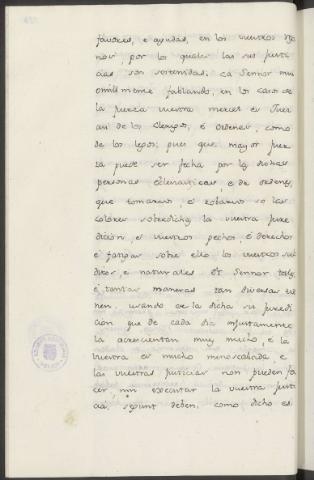 favores, e ayudas, en los vuestros Reg
nos, por lo quales las sus justi
cias son sostenidas: ca Sennor mui
omillmente fablando, en los casos de
la fuerza vuestra merced es Juez
asi de los clerigos, é Ordenes, como
de los legos; pues que mayor fuer
za puede ser fecha por las dichas
personas Eclesiasticas, e de ordenes,
que tomarvos, é robarvos so las
colores sobredichas la vuestra jure
dicion, é vuestros pechos, é derechos
é fatigar sobre ello los vuestros sub
ditos, e naturales. Et Sennor tales,
é tantas maneras tan diversas tie
nen, usando de la dicha su juredi
cion que de cada dia injustamente
la acrescientan muy mucho, e la
vuestra es mucho menoscabada, e
las vuestras justicias non pueden fa
cer, nin executar la vuestra justi
cia, segunt deben, como dicho es.